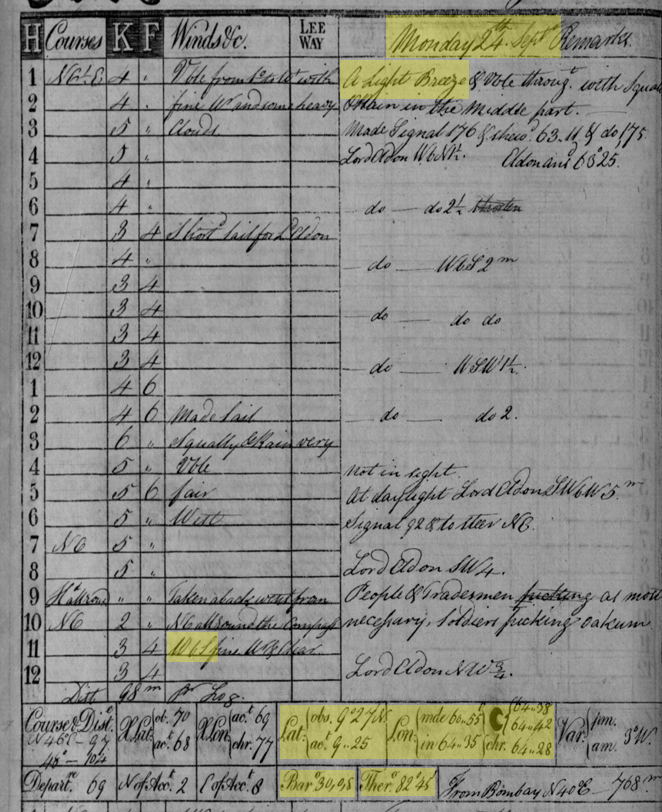 H Courses K F Winds &c. LEE WAY Monday 24th Septr Remarks
1 NbE 4 " Vble from to Wt with A Light Breeze & Vble throug. with Squalls
2 4 " fine Wr and some heavy & Rain in the Middle part.
3 5 " Clouds Made Signal 176 & shewd 63. & do 175
4 5 " Lord Eldon WbN 1½. Eldon ansd 6 25.
5 4 "
6 4 " do — do 2½
7 3 4 Short sail for Ld Eldon
8 4 " do — WbS 2m
9 3 4
10 3 4 do — do do
11 3 4
12 3 4 do — WSW 1½.
1 4 6
2 4 6 Made Sail do — do 2.
3 6 " Squally & Rain very
4 5 " Vble not in sight.
5 5 6 fair At daylight Lord Eldon SWbW 5m
6 5 " West Signal 92 & to steer NE.
7 NE 5 "
8 5 " Lord Eldon SW 4.
9 " " Taken aback went from People & Tradesmen as most
10 NE 2 " NE all round the Compass necessary. Soldiers picking oakum
11 3 4 WbS fine Wr & Clear
12 3 4 Lord Eldon NW ¾
Dist 98m pr Log.
Course & Dist. N 46 E - 97 45 - 104 X Lat ot. 70 act 68 X Lon act 69 chr. 77 Lat. obs. 9°27 N. act 9..25 Lon mde 60..55 in 64..35 chr. 64..38 64..42 64..28 Var. pm. am. 3°W.
Depart. 69 N of Acct 2 E of Acct 8 Bar° 30,05 Ther° 82°45' From Bombay N40°E — 768m